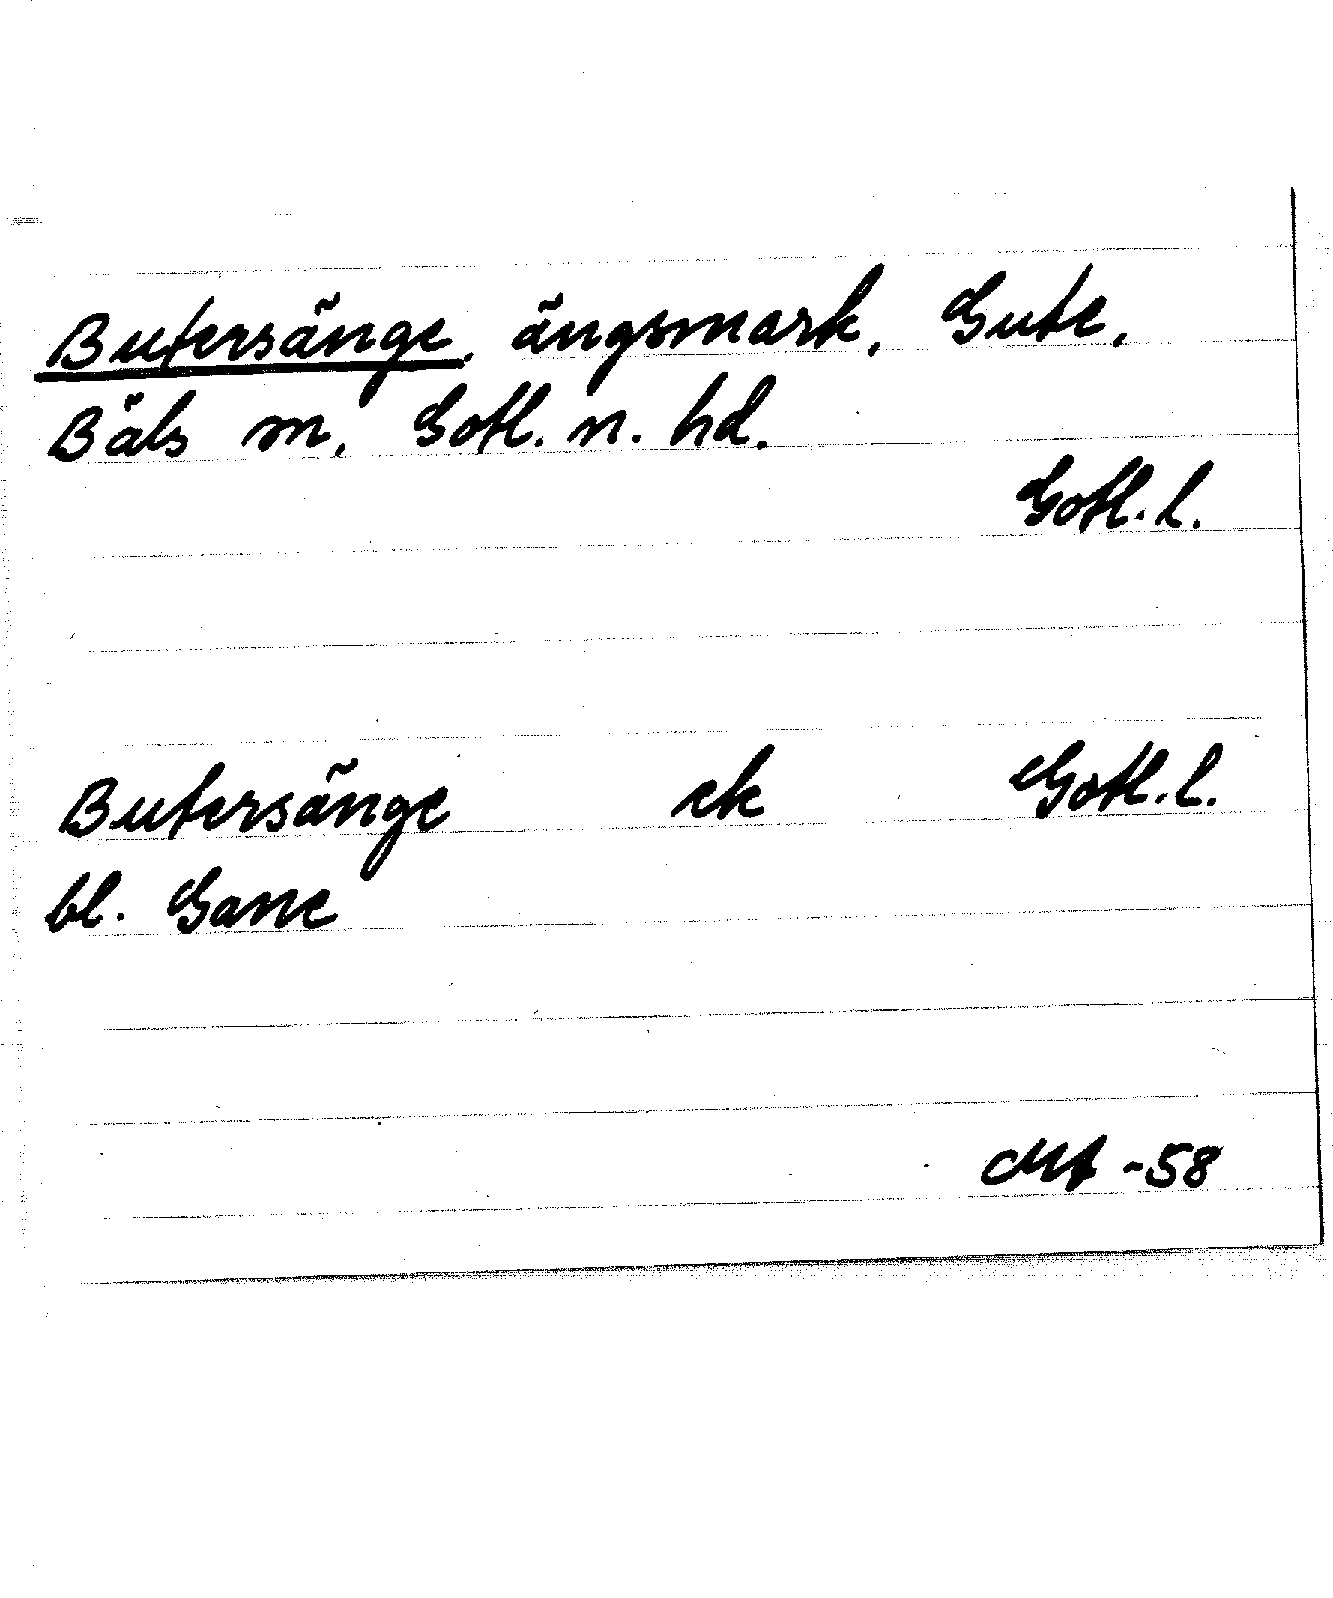 Butersänge, ängsmark, Gute,
Bäls sn, Gotl. n. hd.
Gotl. l.
Butersänge ek Gotl. l.
bl. Gane
-58